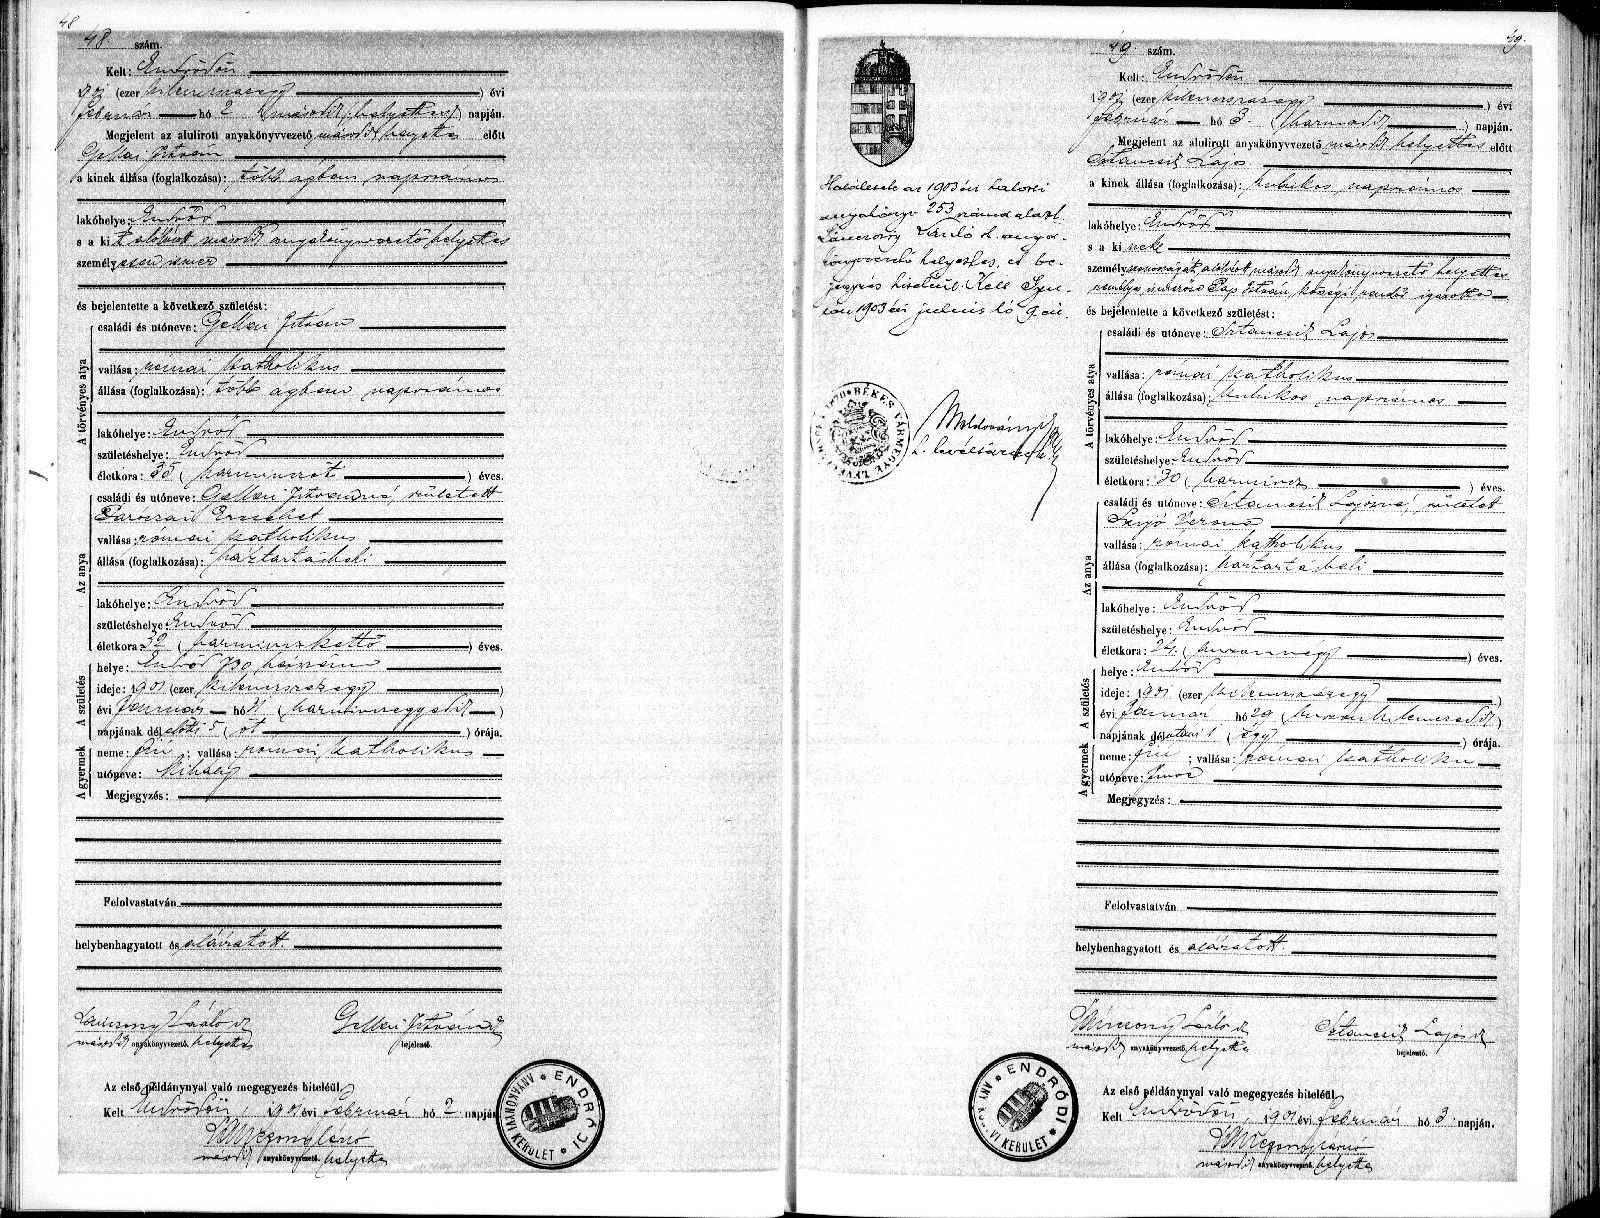 48
48. szám.
Kelt: Endrődön
1901 (ezer kilencszázegy) évi
február hó 2 (második) napján.
Megjelent az alulirott anyakönyvvezető második helyettes előtt
Gellai István
a kinek állása (foglalkozása): több ágbeni napszámos
lakóhelye: Endrőd
s a kit alólirott második anyakönyvvezető helyettes
személyesen ismer
és bejelentette a következő születést:
A törvényes atya
családi és utóneve: Gellai István
vallása: római katholikus
állása (foglalkozása): több ágbeni napszámos
lakóhelye: Endrőd
születéshelye: Endrőd
életkora: 35 (harmincöt) éves.
Az anya
családi és utóneve: Gellai Istvánné, született
Erzsébet
vallása: római katholikus
állása (foglalkozása): háztartásbeli
lakóhelye: Endrőd
születéshelye: Endrőd
életkora: 32 (harminczkettő) éves.
A születés
helye: Endrőd 730 házszám
ideje: 1901 (ezer kilencszázegy)
évi január hó 31 (harminczegyedik)
napjának délelőtti 5 (öt) órája.
A gyermek
neme: fiú; vallása: római katholikus
utóneve: Mihály
Megjegyzés:
Felolvastatván
helybenhagyatott és aláíratott.
László
második anyakönyvvezető helyettes
Gellai István
bejelentő.
Az első példánynyal való megegyezés hiteléül
Kelt Endrődön, 1901 évi február hó 2 napján
második anyakönyvvezető. helyettes
ENDRŐDI
ANYAKÖNYVI KERÜLET
49.
49. szám.
Kelt: Endrődön
1901 (ezer kilencszázegy) évi
február hó 3. (harmadik) napján.
Megjelent az alulirott anyakönyvvezető második helyettes előtt
Sztancsik Lajos
a kinek állása (foglalkozása): kubikos napszámos
lakóhelye: Endrőd
s a kinek
személyazonosságát alólirott második anyakönyvvezető helyettes
személyes ismerőse Pap István, községi rendőr igazolta
és bejelentette a következő születést:
A törvényes atya
családi és utóneve: Sztancsik Lajos
vallása: római katholikus
állása (foglalkozása): kubikos napszámos
lakóhelye: Endrőd
születéshelye: Endrőd
életkora: 30 (harmincz) éves.
Az anya
családi és utóneve: Sztancsik Lajosné, született
Szujó Verona
vallása: római katholikus
állása (foglalkozása): háztartásbeli
lakóhelye: Endrőd
születéshelye: Endrőd
életkora: 24 (huszonnégy) éves.
A születés
helye: Endrőd
ideje: 1901 (ezer kilencszázegy)
évi január hó 29 (huszonkilenczedik)
napjának délutáni 1 (egy) órája.
A gyermek
neme: fiú; vallása: római katholikus
utóneve: Imre
Megjegyzés:
Felolvastatván
helybenhagyatott és aláíratott.
László
második anyakönyvvezető helyettes
Sztancsik Lajos
bejelentő.
Az első példánynyal való megegyezés hiteléül
Kelt Endrődön, 1901 évi február hó 3. napján.
második anyakönyvvezető. helyettes
ENDRŐDI
ANYAKÖNYVI KERÜLET
Halálesete az 1903 évi halotti
anyakönyv 253 szám alatt.
László h. anya-
könyvvezető helyettes, ez be-
jegyzés hiteléül. Kelt Gyu-
lán 1903 évi julius hó 9 én.
BÉKÉS VÁRMEGYE LEVÉLTÁRA